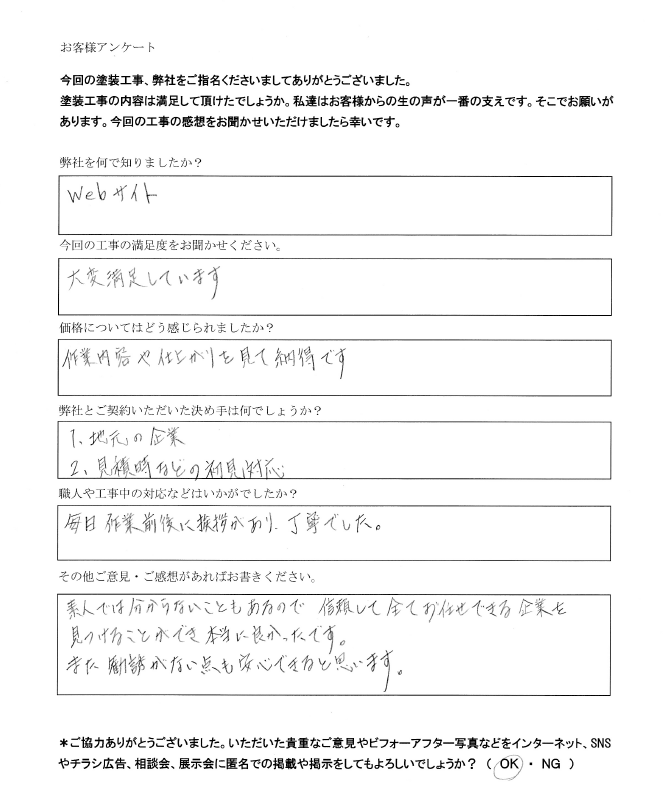 お客様アンケート
今回の塗装工事、弊社をご指名くださいましてありがとうございました。
塗装工事の内容は満足して頂けたでしょうか。私達はお客様からの生の声が一番の支えです。そこでお願いが
あります。今回の工事の感想をお聞かせいただけましたら幸いです。
弊社を何で知りましたか？
Webサイト
今回の工事の満足度をお聞かせください。
大変満足しています
価格についてはどう感じられましたか？
作業内容や仕上がりを見て納得です
弊社とご契約いただいた決め手は何でしょうか？
1、地元の企業
2、見積時などの初見対応
職人や工事中の対応などはいかがでしたか？
毎日作業前後に挨拶があり、丁寧でした。
その他ご意見・ご感想があればお書きください。
素人では分からないこともあるので 信頼して全てお任せできる企業を
見つけることができ本当に良かったです。
また勧誘がない点も安心できると思います。
＊ご協力ありがとうございました。いただいた貴重なご意見やビフォーアフター写真などをインターネット、SNS
やチラシ広告、相談会、展示会に匿名での掲載や掲示をしてもよろしいでしょうか？（ OK ・ NG ）